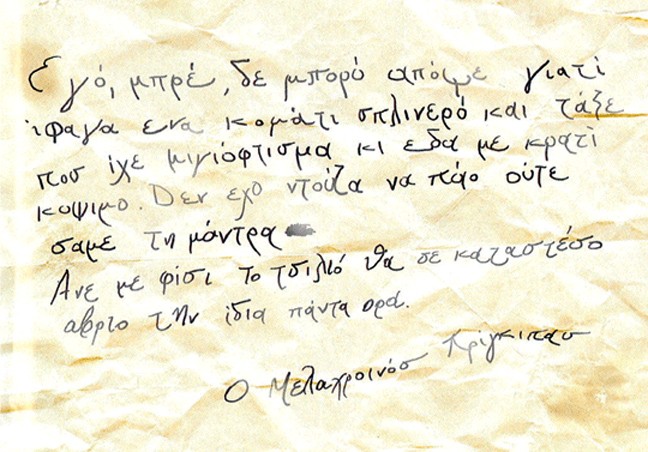 Εγό, μπρέ, δε μπορό απόψε γιατί
ίφαγα ενα κομάτι σπλινερό και τάξε
που ίχε μιγιόφτισμα κι εδα με κρατί
κοψιμο. Δεν εχο ντούζα να πάο ούτε
σαμε τη μάντρα
Ανε με φίσι το τσιλιό θα σε καταστέσο
αβριο την ίδια πάντα ορά.
Ο Μελαχροινός Κρίγκιπας